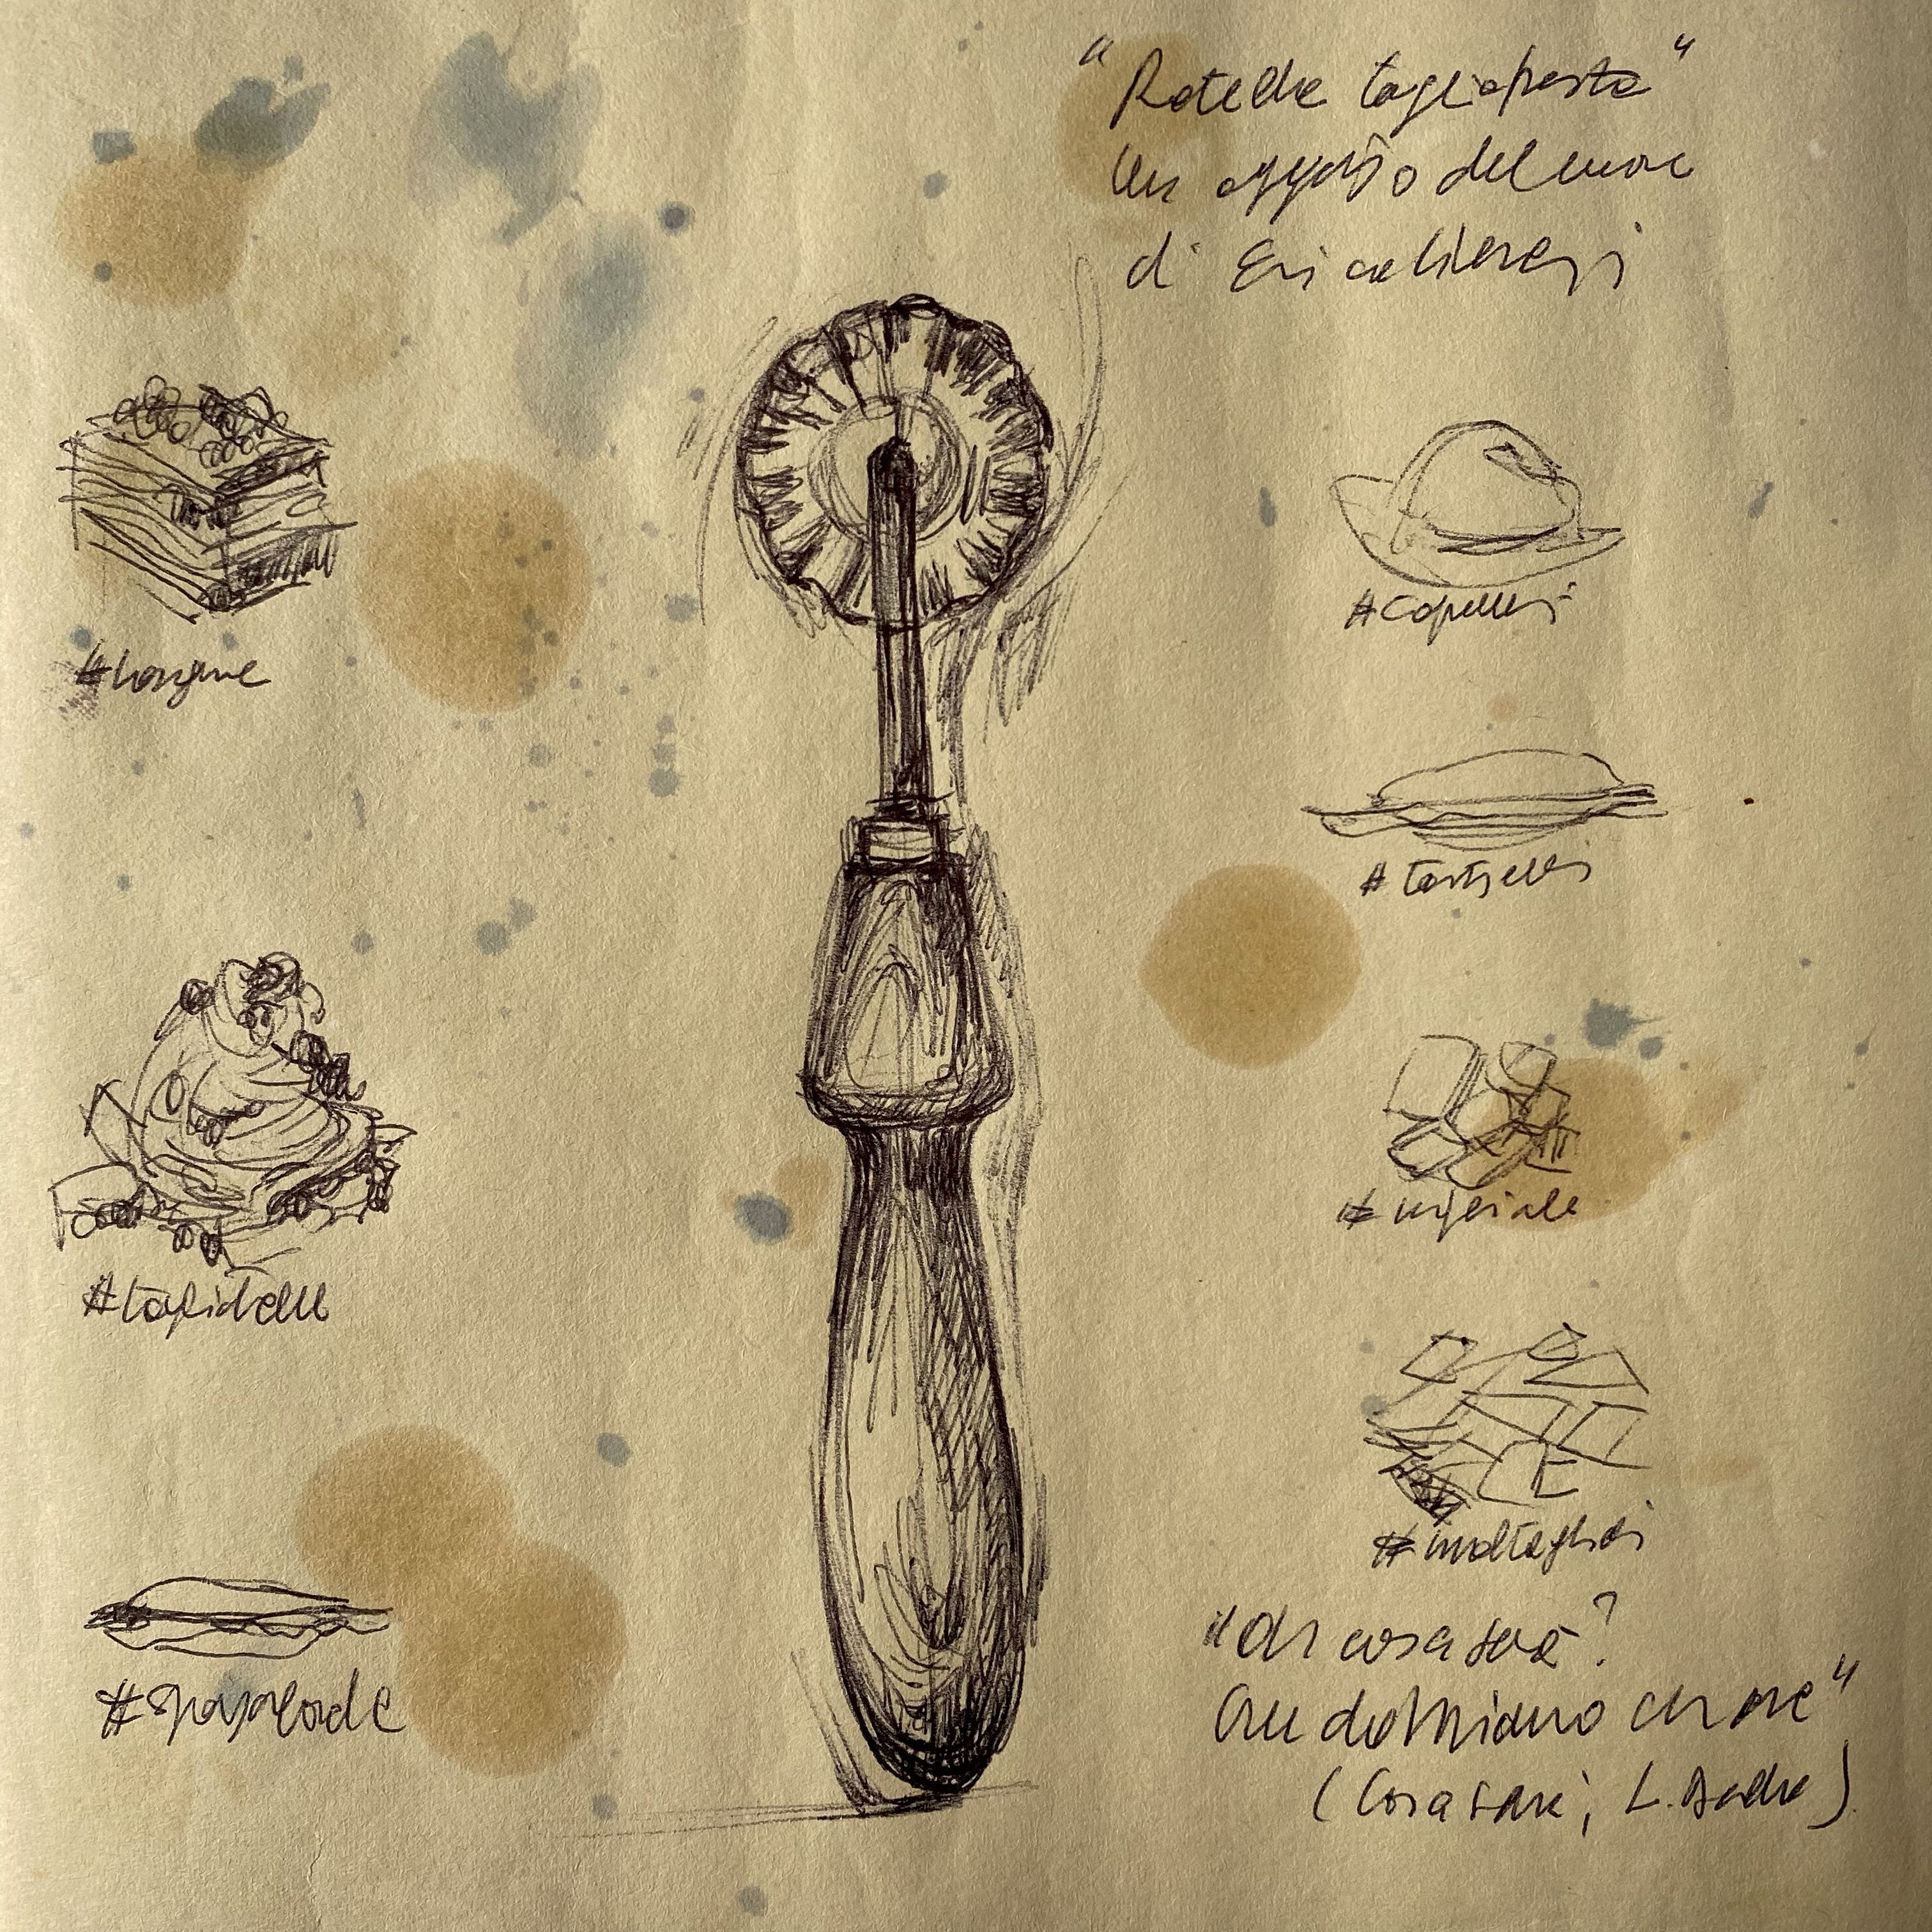 "Rotella tagliapasta"
Un oggetto del cuore
di Erica Liverani
#lasagne
#cappelletti
#tortelli
#tagliatelle
#maltagliati
#spojalorda
"Oh cosa sarà?
Che dobbiamo cercare"
(Cosa sarà, L. Dalla)